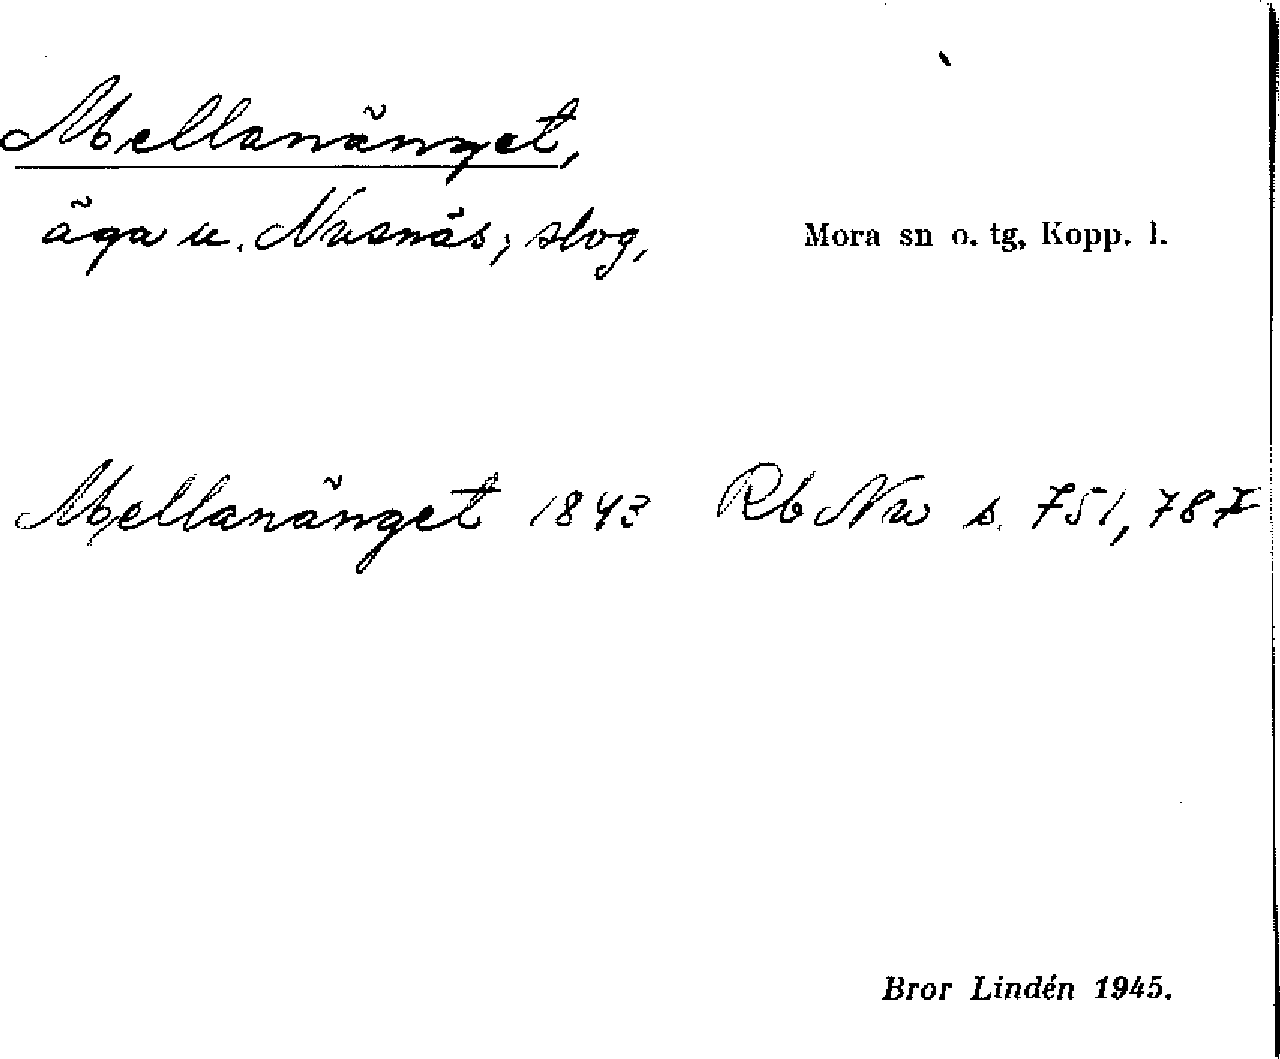 Mellanänget,
äga u. Nusnäs, slog,
Mora sn o. tg, Kopp. l.
Mellanänget 1843 Rb Nu s. 751, 787
Bror Lindén 1945.